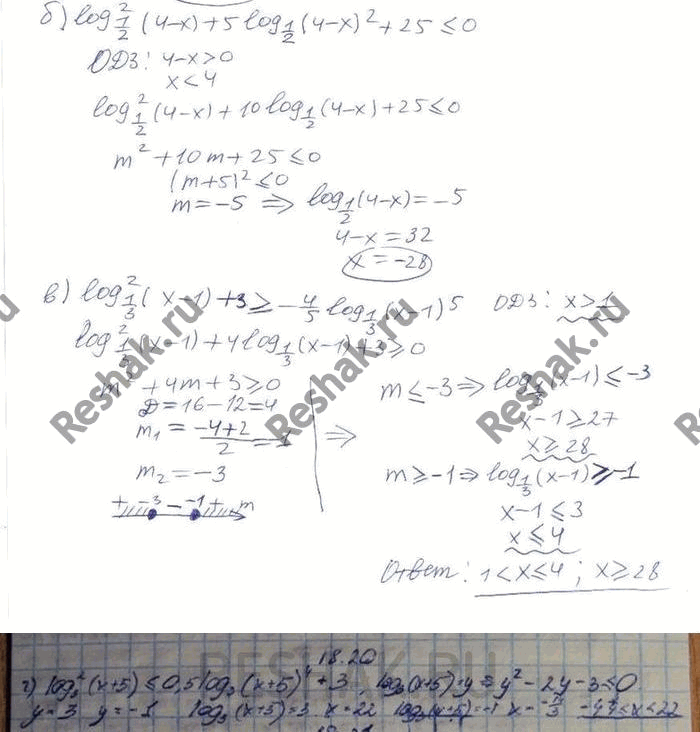 б) log²_{1/2} (4-x) + 5 log_{1/2} (4-x)² + 25 ≤ 0
ОДЗ: 4-x > 0
x < 4
log²_{1/2} (4-x) + 10 log_{1/2} (4-x) + 25 ≤ 0
m² + 10m + 25 ≤ 0
(m+5)² ≤ 0
m = -5 ⇒ log_{1/2} (4-x) = -5
4-x = 32
x = -28
в) log²_{1/3} (x-1) + 3 ≥ -4/5 log_{1/3} (x-1)⁵ ОДЗ: x > 1
log²_{1/3} (x-1) + 4 log_{1/3} (x-1) + 3 ≥ 0
m² + 4m + 3 ≥ 0
Д = 16 - 12 = 4
m₁ = (-4+2)/2 = -1
m₂ = -3
+ -3 - -1 + m
⇒
m ≤ -3 ⇒ log_{1/3} (x-1) ≤ -3
x-1 ≥ 27
x ≥ 28
m ≥ -1 ⇒ log_{1/3} (x-1) ≥ -1
x-1 ≤ 3
x ≤ 4
Ответ: 1 < x ≤ 4 ; x ≥ 28
Reshak.ru
Reshak.ru
Reshak.ru
RESHAK.RU
18.20
г) log²₃ (x+5) ≤ 0,5 log₃ (x+5)⁴ + 3, log₃(x+5) = y ⇒ y² - 2y - 3 ≤ 0
y = 3 y = -1 log₃ (x+5) = 3 x = 22 log₃(x+5) = -1